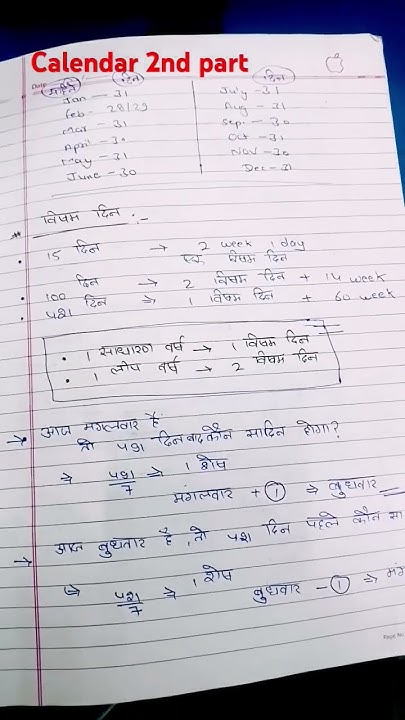 Calendar 2nd part
Date
महिने दिन
दिन
Jan - 31
Feb - 28/29
Mar - 31
April - 30
May - 31
June - 30
July - 31
Aug - 31
Sep. - 30
Oct - 31
Nov - 30
Dec - 31
विषम दिन :-
15 दिन → 2 week 1 day
एक विषम दिन
100 दिन → 2 विषम दिन + 14 week
421 दिन ⇒ 1 विषम दिन + 60 week
1 साधारण वर्ष → 1 विषम दिन
1 लीप वर्ष → 2 विषम दिन
→ आज मंगलवार है
तो 421 दिन बाद कौन सा दिन होगा?
⇒ 421/7 ⇒ 1 शेष
मंगलवार + 1 ⇒ बुधवार
→ आज बुधवार है, तो 421 दिन पहले कौन सा
⇒ 421/7 ⇒ 1 शेष
बुधवार - 1 ⇒
Page No.